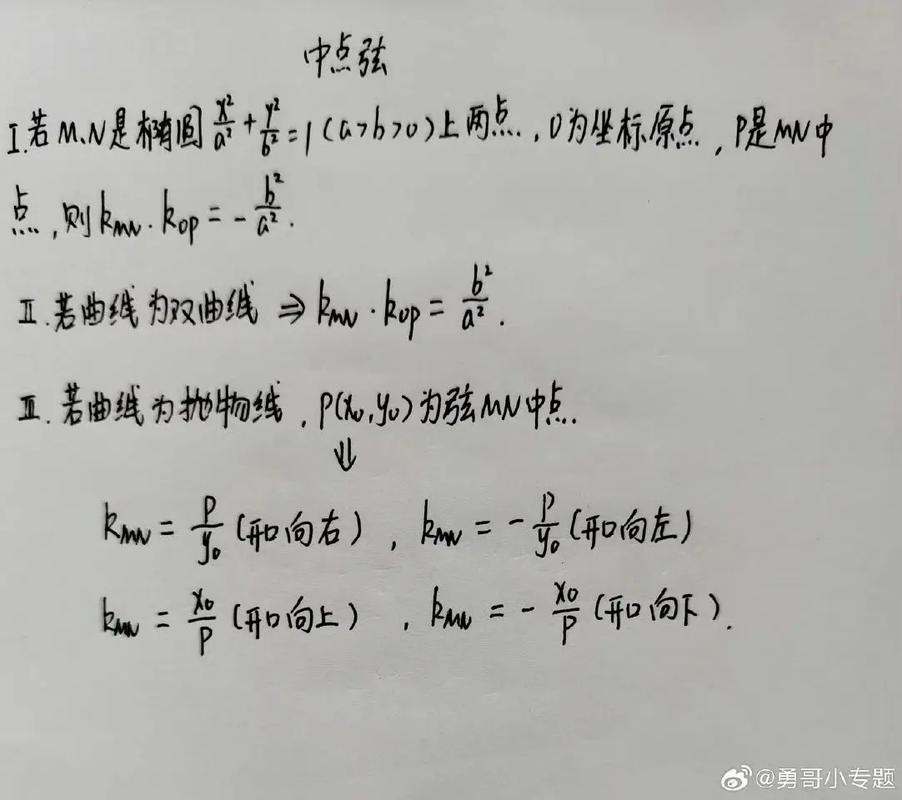 中点弦
I.若M、N是椭圆x²/a²+y²/b²=1(a>b>0)上两点,O为坐标原点,P是MN中
点,则k_MN·k_OP=-b²/a².
II.若曲线为双曲线⇒k_MN·k_OP=b²/a².
III.若曲线为抛物线,P(x₀,y₀)为弦MN中点.
⇓
k_MN=p/y₀(开口向右),k_MN=-p/y₀(开口向左)
k_MN=x₀/p(开口向上),k_MN=-x₀/p(开口向下).
@勇哥小专题